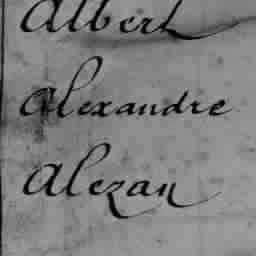 Albert
Alexandre
Alezan